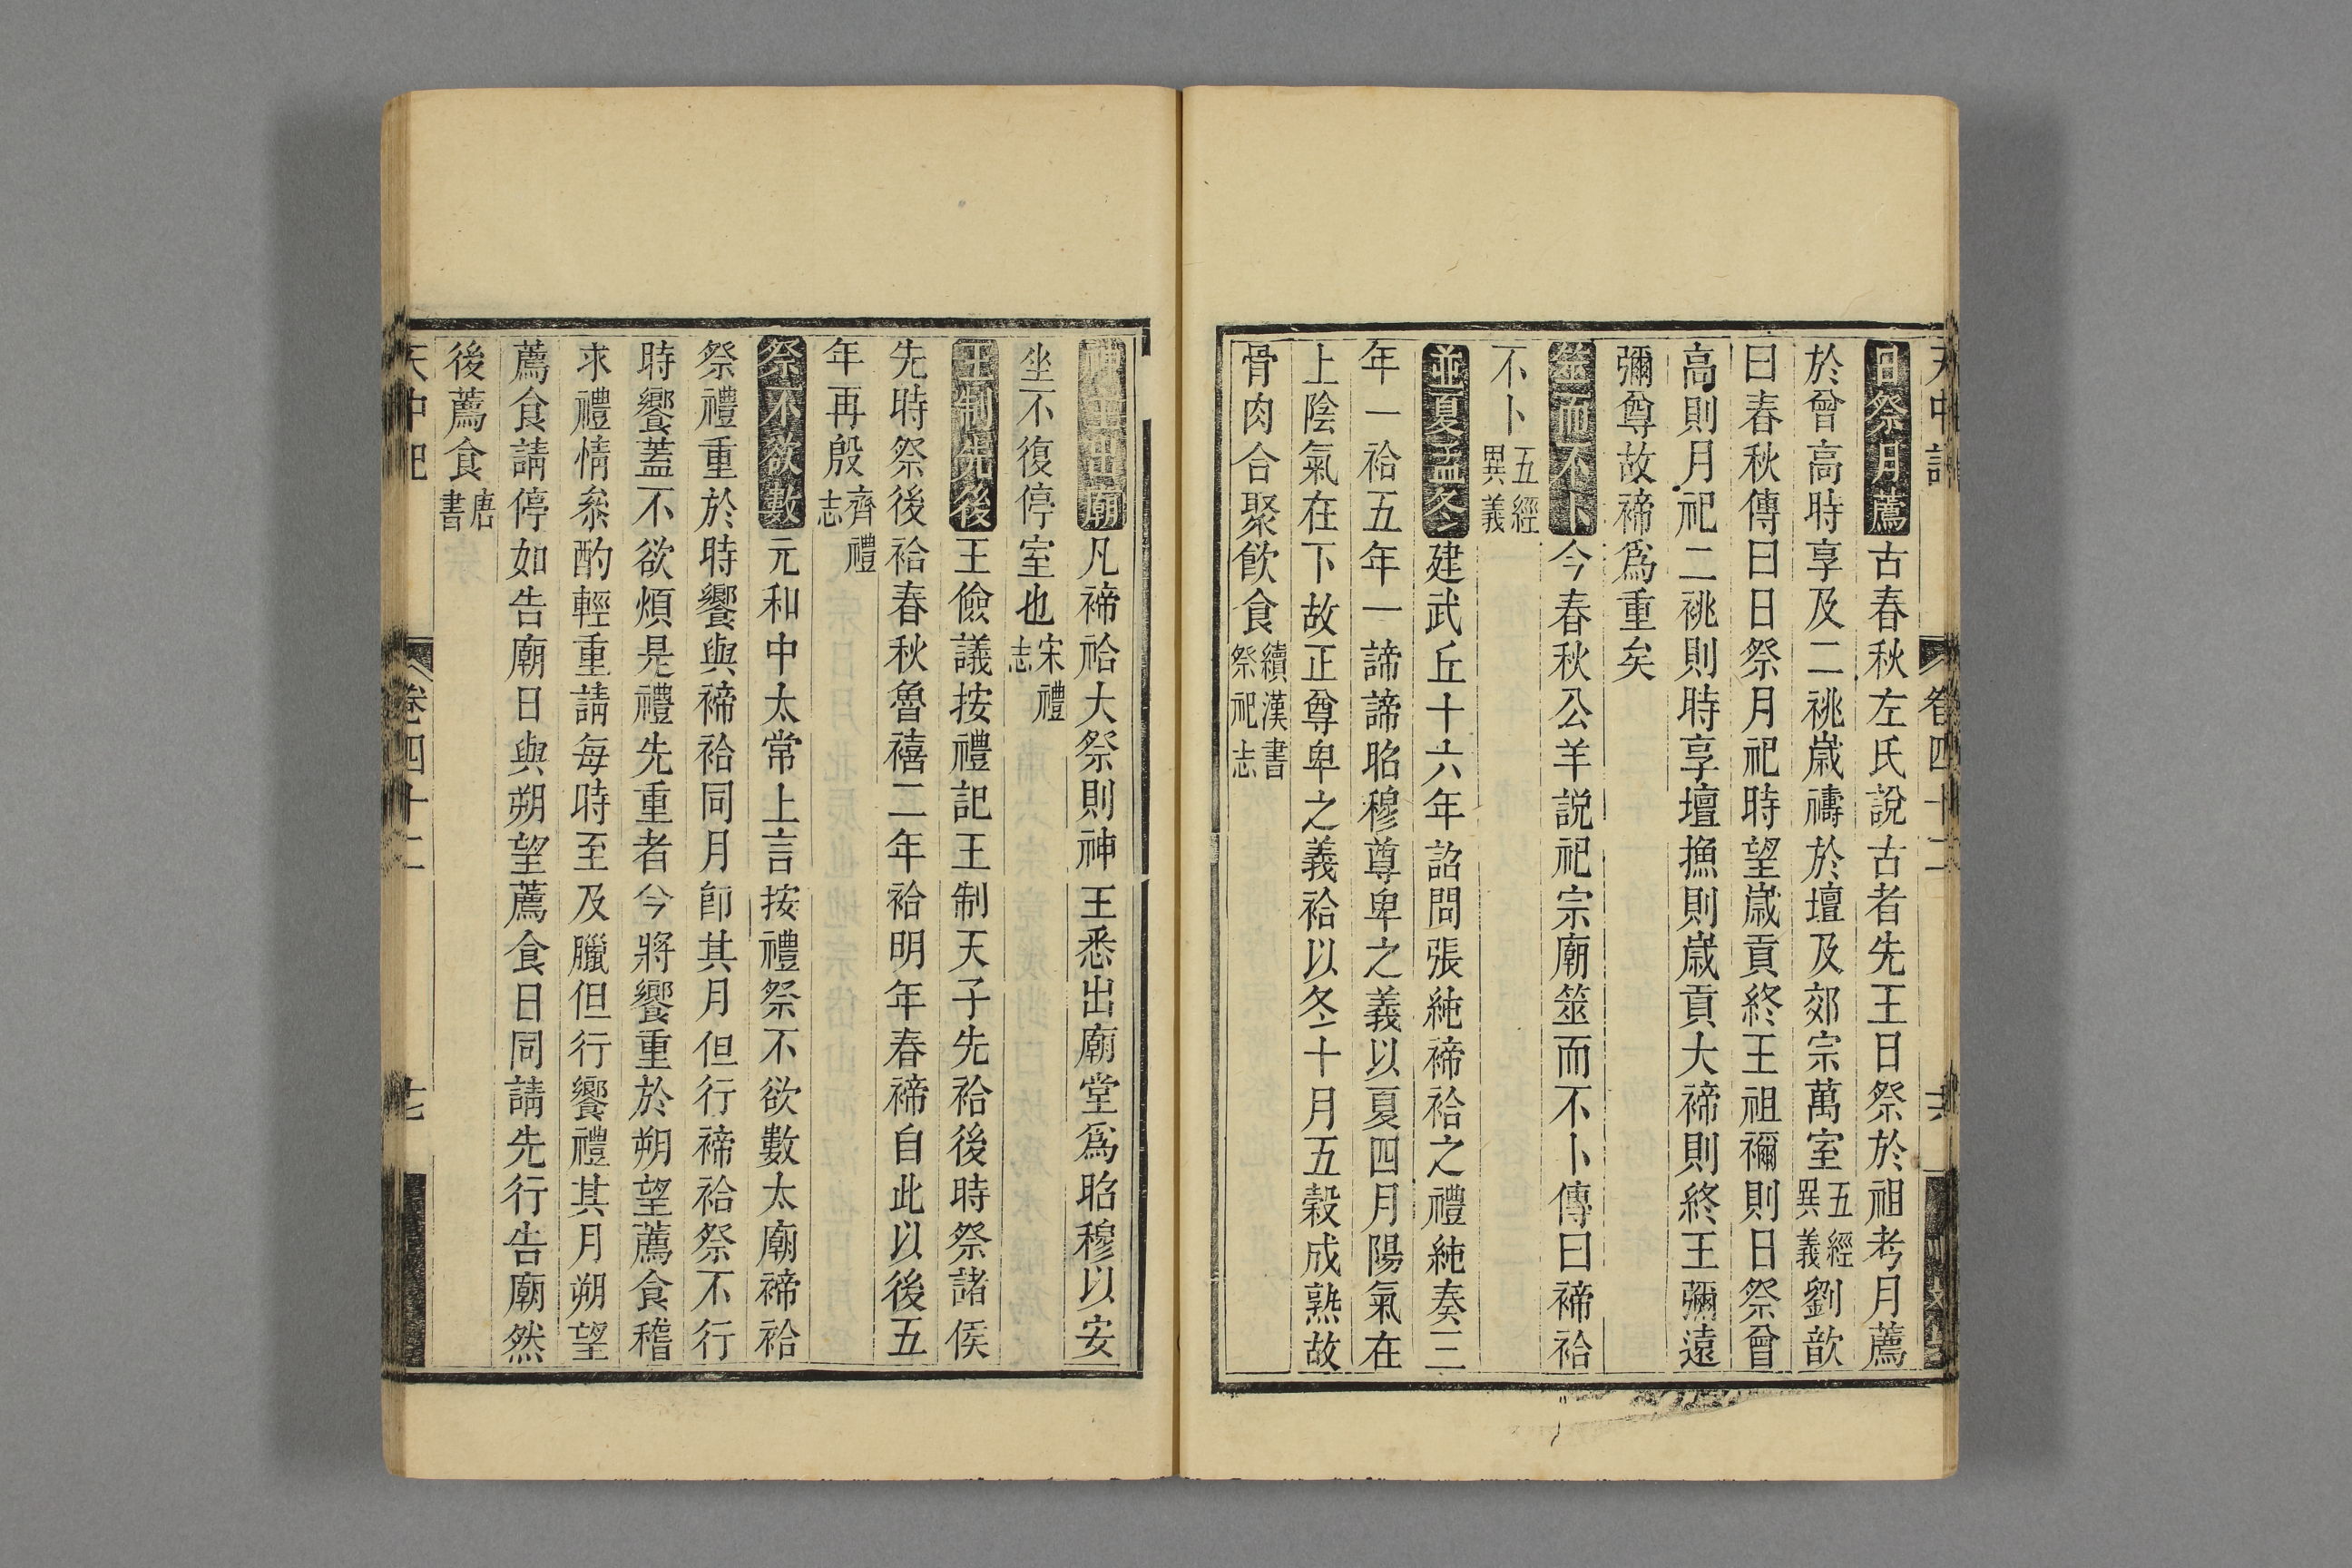 日祭月薦古春秋左氏說古者先王日祭於祖考月薦
於曾高時享及二祧歲禱於壇及郊宗萬室五經異義劉歆
曰春秋傳曰日祭月祀時望歲貢終王祖禰則日祭曾
高則月祀二祧則時享壇墠則歲貢大禘則終王彌遠
彌尊故禘爲重矣
筮而不卜今春秋公羊說祀宗廟筮而不卜傳曰禘祫
不卜五經異義
並夏孟冬建武丘十六年詔問張純禘祫之禮純奏三
年一祫五年一諦諦昭穆尊卑之義以夏四月陽氣在
上陰氣在下故正尊卑之義祫以冬十月五穀成熟故
骨肉合聚飲食續漢書祭祀志
神主出廟凡禘祫大祭則神王悉出廟堂爲昭穆以安
坐不復停室也宋禮志
王制先後王儉議按禮記王制天子先祫後時祭諸侯
先時祭後祫春秋魯禧二年祫明年春禘自此以後五
年再殷齊禮志
祭不欲數元和中太常上言按禮祭不欲數太廟禘祫
祭禮重於時饗與禘祫同月卽其月但行禘祫祭不行
時饗蓋不欲煩是禮先重者今將饗重於朔望薦食稽
求禮情叅酌輕重請每時至及臘但行饗禮其月朔望
薦食請停如告廟日與朔望薦食日同請先行告廟然
後薦食唐書
天中記 卷四十二 十七